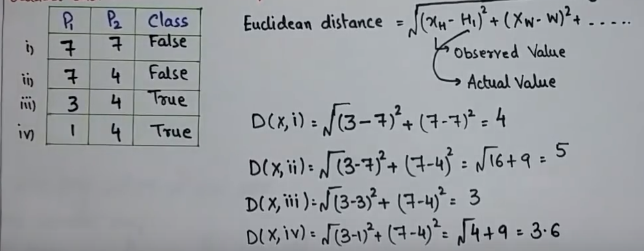 P₁ P₂ Class
i) 7 7 False
ii) 7 4 False
iii) 3 4 True
iv) 1 4 True
Euclidean distance = √(x_H - H₁)² + (X_W - W)² + .....
Observed Value
Actual Value
D(x,i) = √(3-7)² + (7-7)² = 4
D(x,ii) = √(3-7)² + (7-4)² = √16+9 = 5
D(x,iii) = √(3-3)² + (7-4)² = 3
D(x,iv) = √(3-1)² + (7-4)² = √4+9 = 3.6